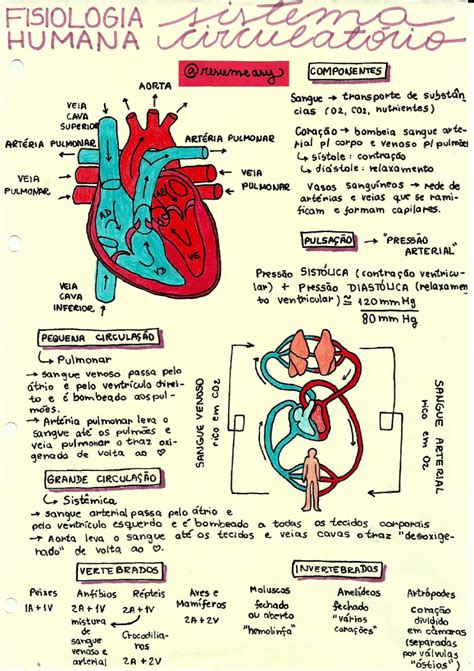 FISIOLOGIA HUMANA
sistema circulatório
@resumeasy
AORTA
VEIA CAVA SUPERIOR
ARTÉRIA PULMONAR
ARTÉRIA PULMONAR
VEIA PULMONAR
VEIA PULMONAR
AD
AE
VD
VE
VEIA CAVA INFERIOR
COMPONENTES
Sangue → transporte de substân
cias (O2, CO2, nutrientes)
Coração → bombeia sangue arte-
rial p/ corpo e venoso p/ pulmões
↳ sístole: contração
↳ diástole: relaxamento
Vasos sanguíneos → rede de
artérias e veias que se rami-
ficam e formam capilares.
PULSAÇÃO → "PRESSÃO
ARTERIAL"
Pressão SISTÓLICA (contração ventricu-
lar) + Pressão DIASTÓLICA (relaxamen
to ventricular) ≅ 120 mm Hg
80 mm Hg
PEQUENA CIRCULAÇÃO
↳ Pulmonar
→ sangue venoso passa pelo
átrio e pelo ventrículo direi-
to e é bombeado aos pul-
mões.
→ Artéria pulmonar leva o
sangue até os pulmões e
veia pulmonar o traz oxi-
genado de volta ao ♡
SANGUE VENOSO
rico em CO2
SANGUE ARTERIAL
rico em O2
GRANDE CIRCULAÇÃO
↳ Sistêmica
→ sangue arterial passa pelo átrio e
pelo ventrículo esquerdo e é bombeado a todas os tecidos corporais
→ Aorta leva o sangue até os tecidos e veias cavas o traz "desoxige-
nado" de volta ao ♡.
VERTEBRADOS
Peixes
1A + 1V
Anfíbios
2A + 1V
mistura
de
sangue
venoso e
arterial
Répteis
2A + 1V
Crocodilia-
nos
2A + 2V
Aves e
Mamíferos
2A + 2V
INVERTEBRADOS
Moluscos
fechado
ou
aberto
"hemolinfa"
Anelídeos
fechado
"vários
corações"
Artrópodes
coração
dividido
em câmaras
(separadas
por válvulas
"óstios")